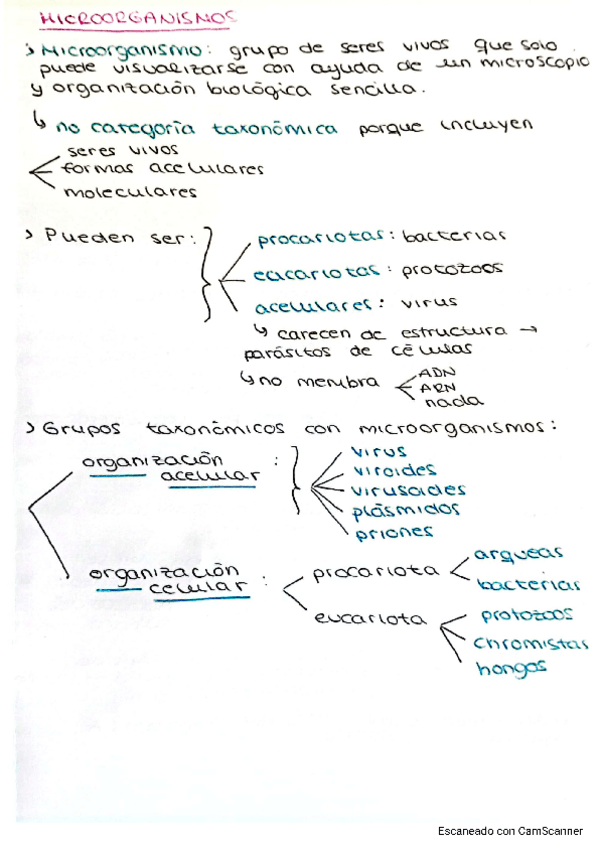 MICROORGANISMOS
> Microorganismo: grupo de seres vivos que solo
puede visualizarse con ayuda de un microscopio
y organización biológica sencilla.
↳ no categoría taxonómica porque incluyen
seres vivos
formas acelulares
moleculares
> Pueden ser:
procariotas: bacterias
eucariotas: protozoos
acelulares: virus
↳ carecen de estructura →
parásitos de células
↳ no membra
ADN
ARN
nada
> Grupos taxonómicos con microorganismos:
organización acelular:
virus
viroides
virusoides
plásmidos
priones
organización celular:
procariota
arqueas
bacterias
eucariota
protozoos
chromistas
hongos
Escaneado con CamScanner